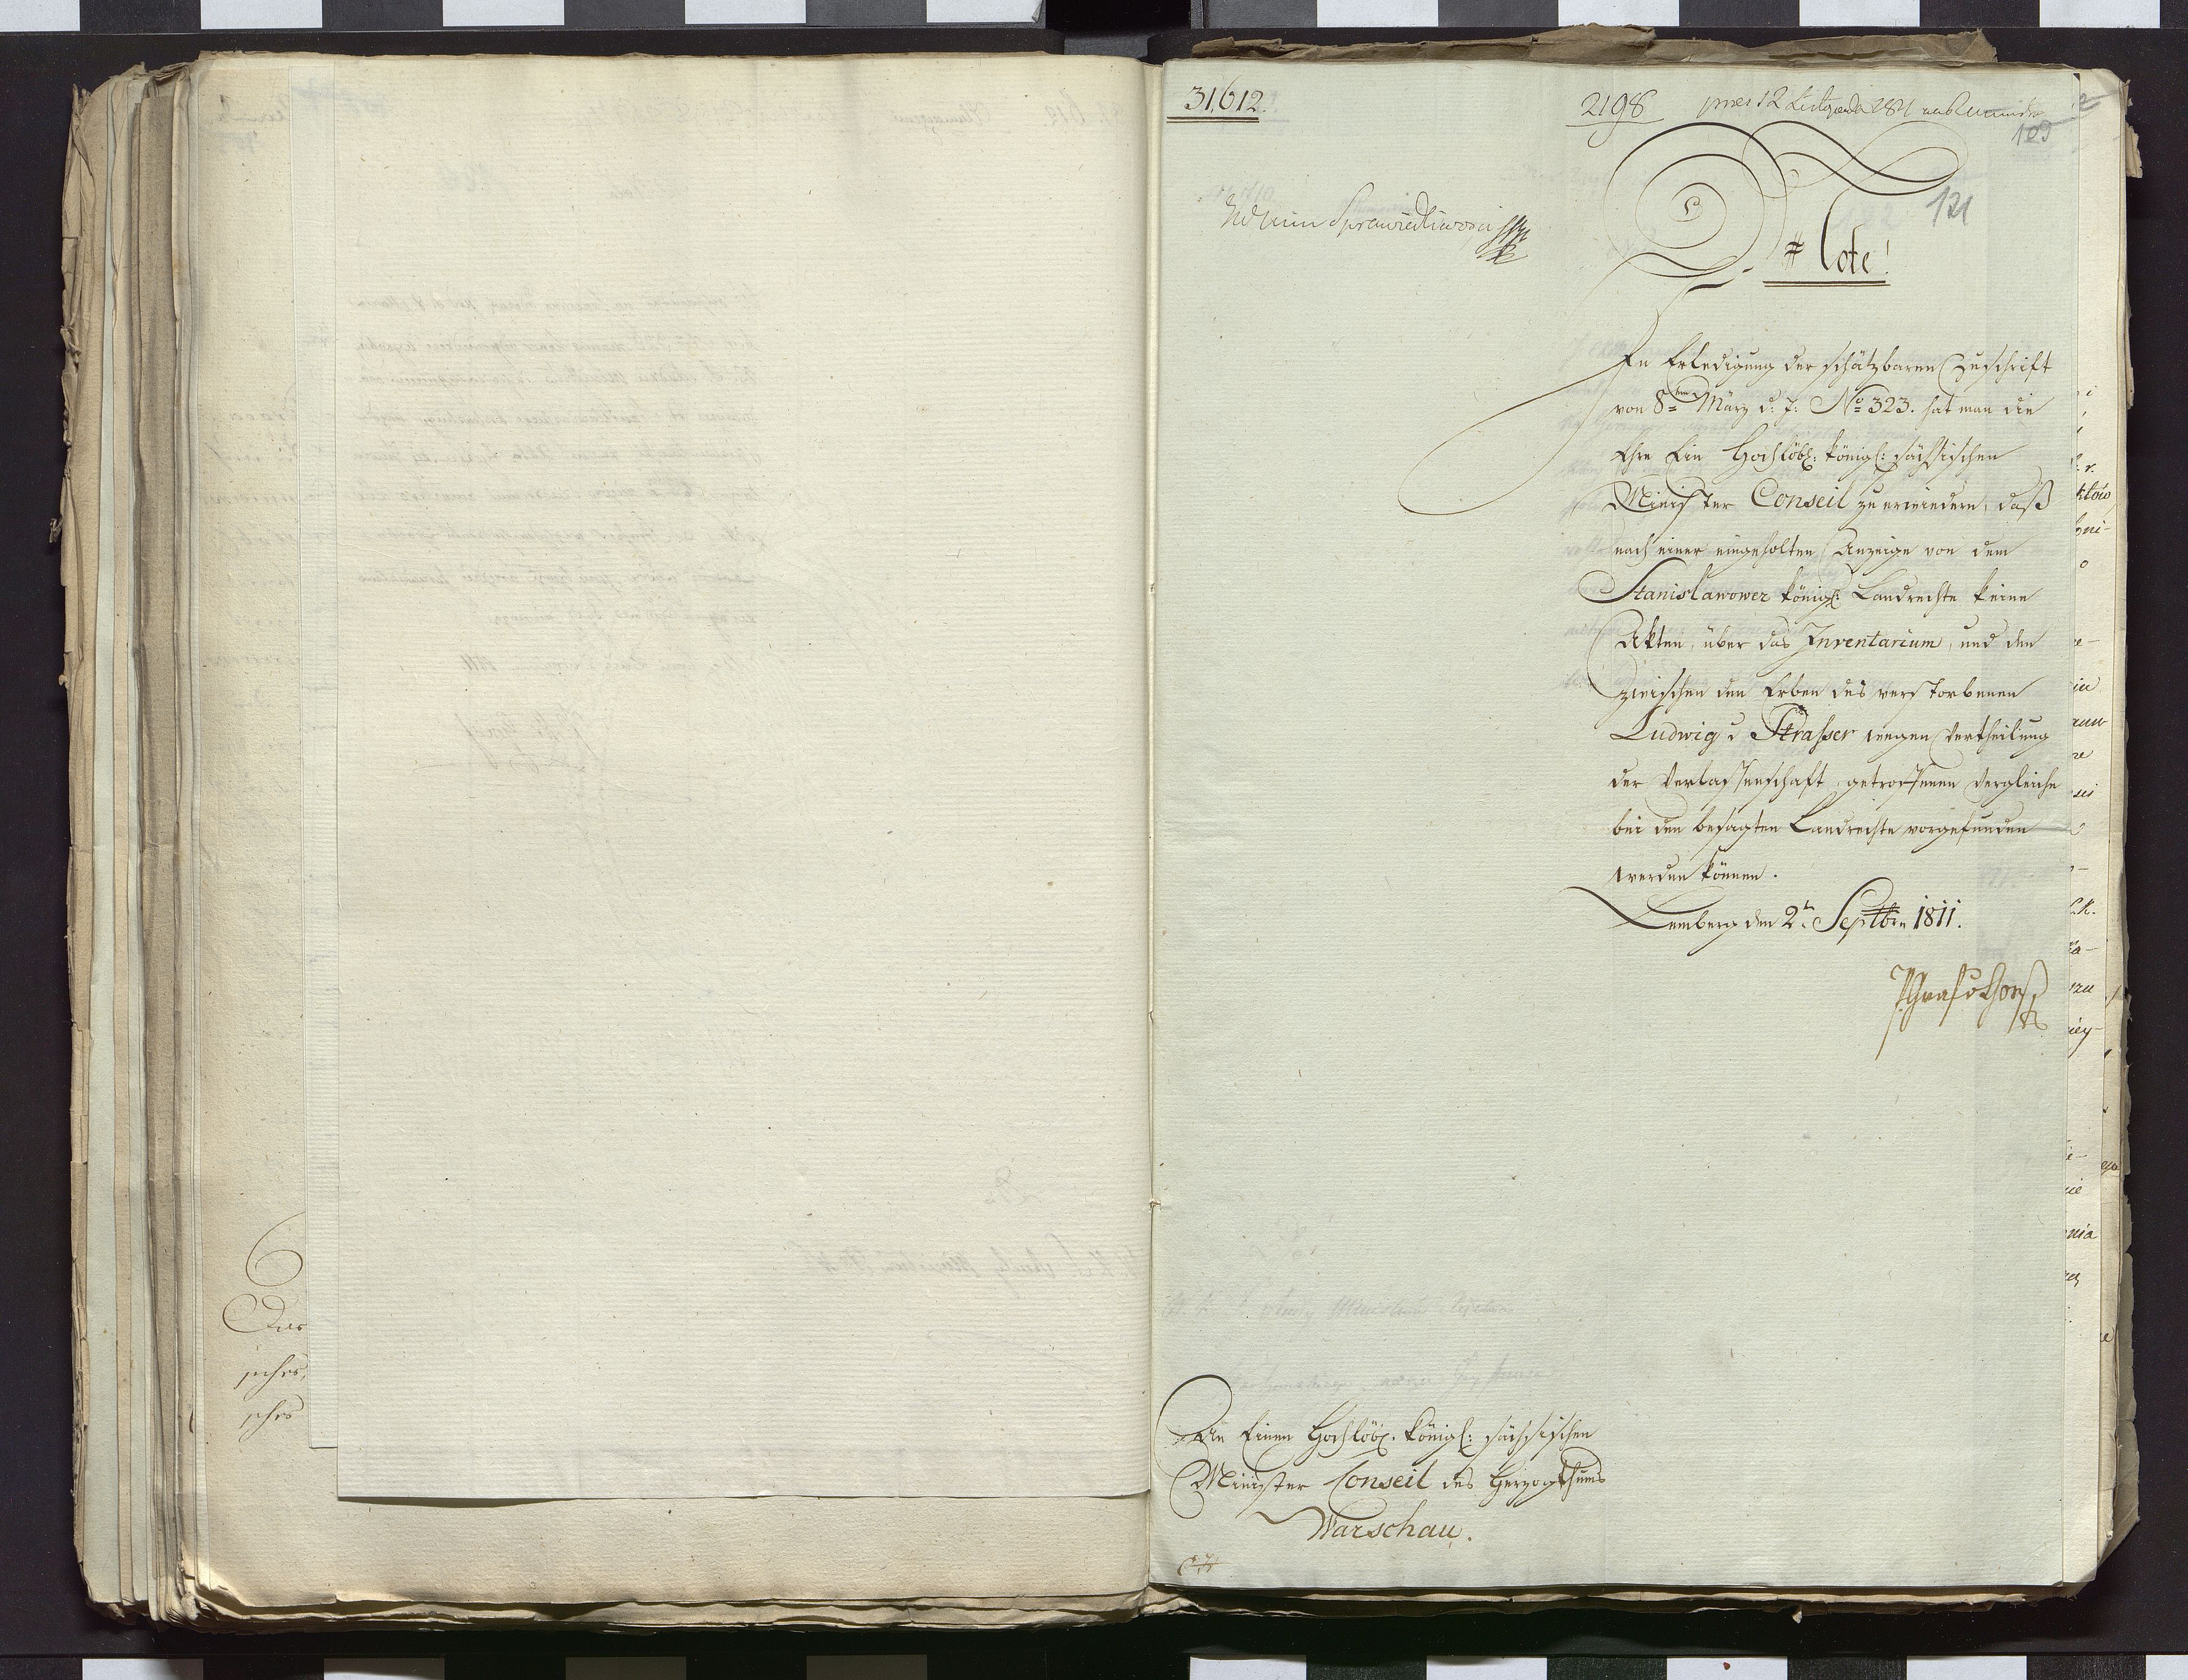 31,612.
2198
pres 12 Listopada 1811
109
121
Note!
In Erledigung der schätzbaren Zuschrift
von 8ten März d: J: No 323. hat man die
Ehre Ein Hochlöbl: königl: sächsischen
Minister Conseil zu erwiedern, daß
nach einer eingeholten Anzeige von dem
Stanislawower königl: Landrechte keine
Akten, über das Inventarium, und den
zwischen den Erben des verstorbenen
Ludwig v Strasser wegen Vertheilung
der Verlassenschaft getroffenen Vergleiche
bei den besagten Landrechte vorgefunden
werden können.
Lemberg den 2t. Septbr 1811.
An Einen Hochlöbl. königl: sächsischen
Minister Conseil des Herzogthums
Warschau.